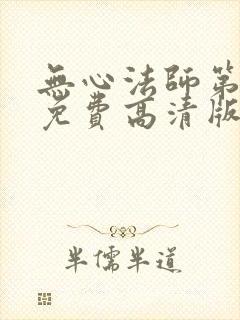 無心法師第
免費高清版
半儒半道